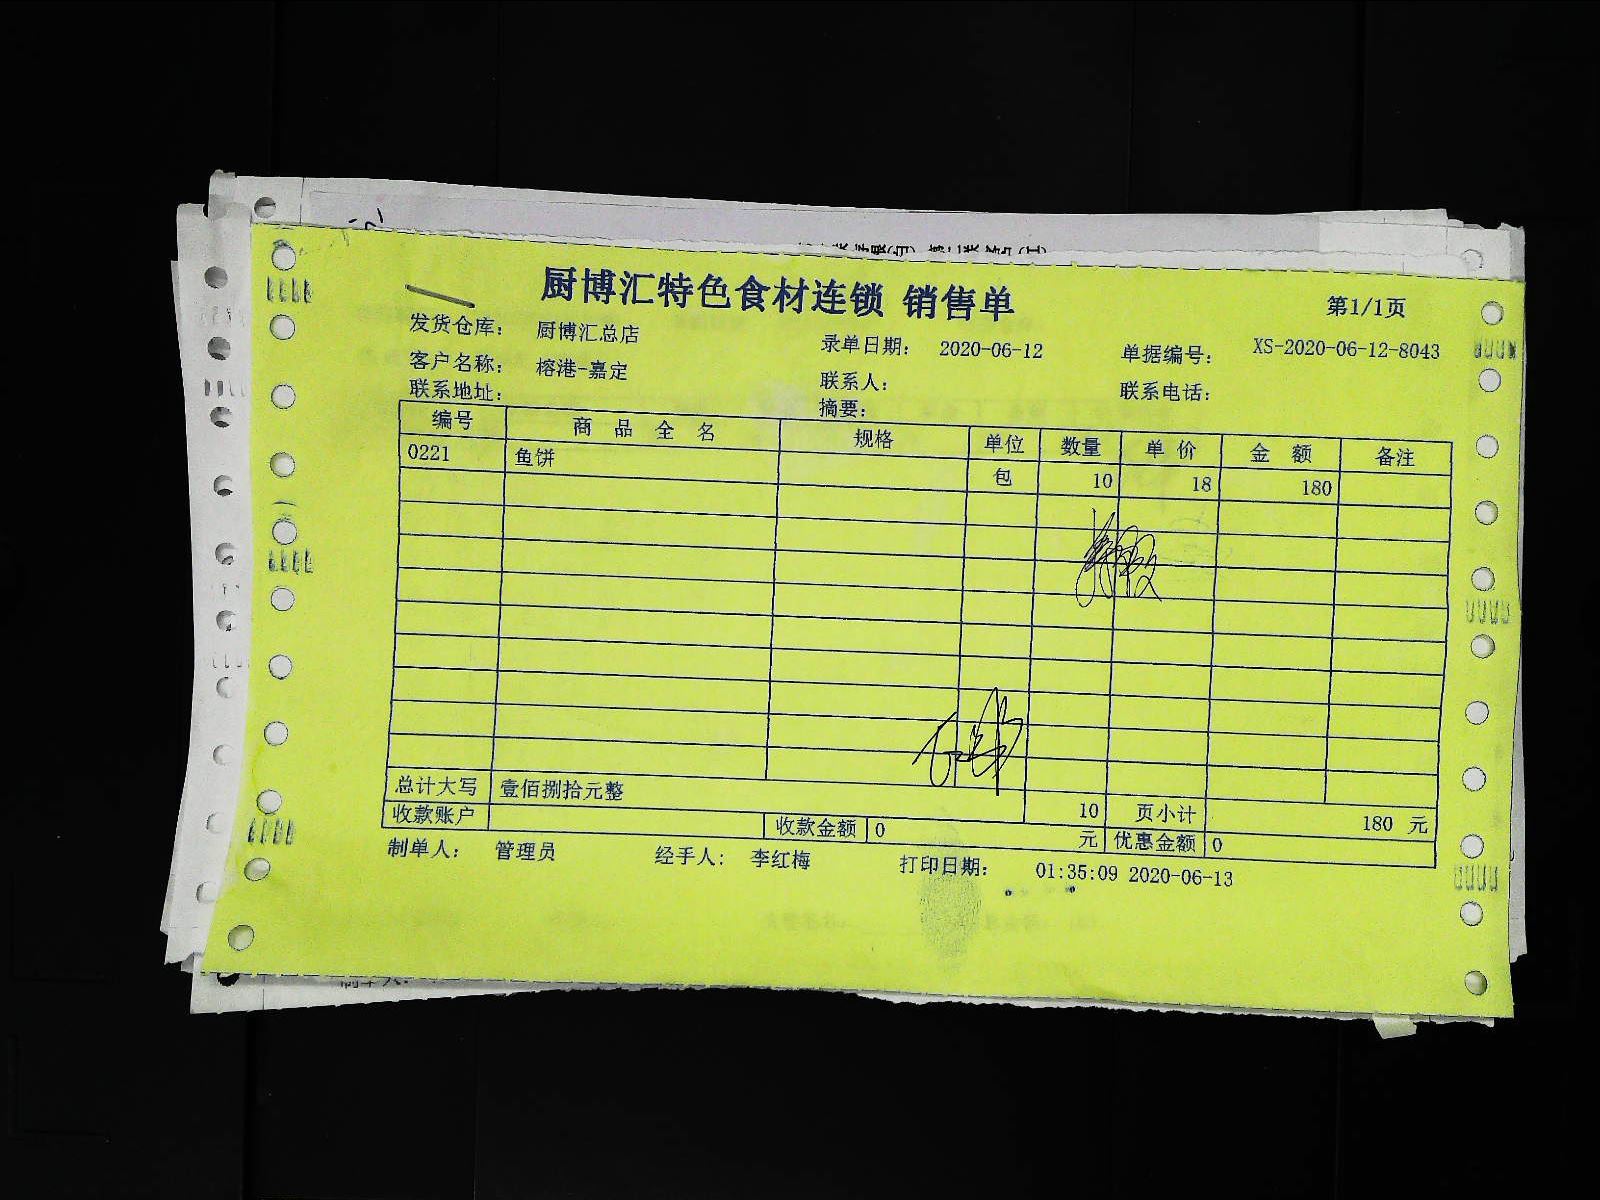 厨博汇特色食材连锁 销售单
第1/1页
发货仓库： 厨博汇总店 录单日期： 2020-06-12 单据编号： XS-2020-06-12-8043
客户名称： 榕港-嘉定 联系人： 联系电话：
联系地址： 摘要：
编号 商 品 全 名 规格 单位 数量 单 价 金 额 备注
0221 鱼饼 包 10 18 180
总计大写 壹佰捌拾元整 10 页小计 180 元
收款账户 收款金额 0 元 优惠金额 0
制单人： 管理员 经手人： 李红梅 打印日期： 01:35:09 2020-06-13
制单人：